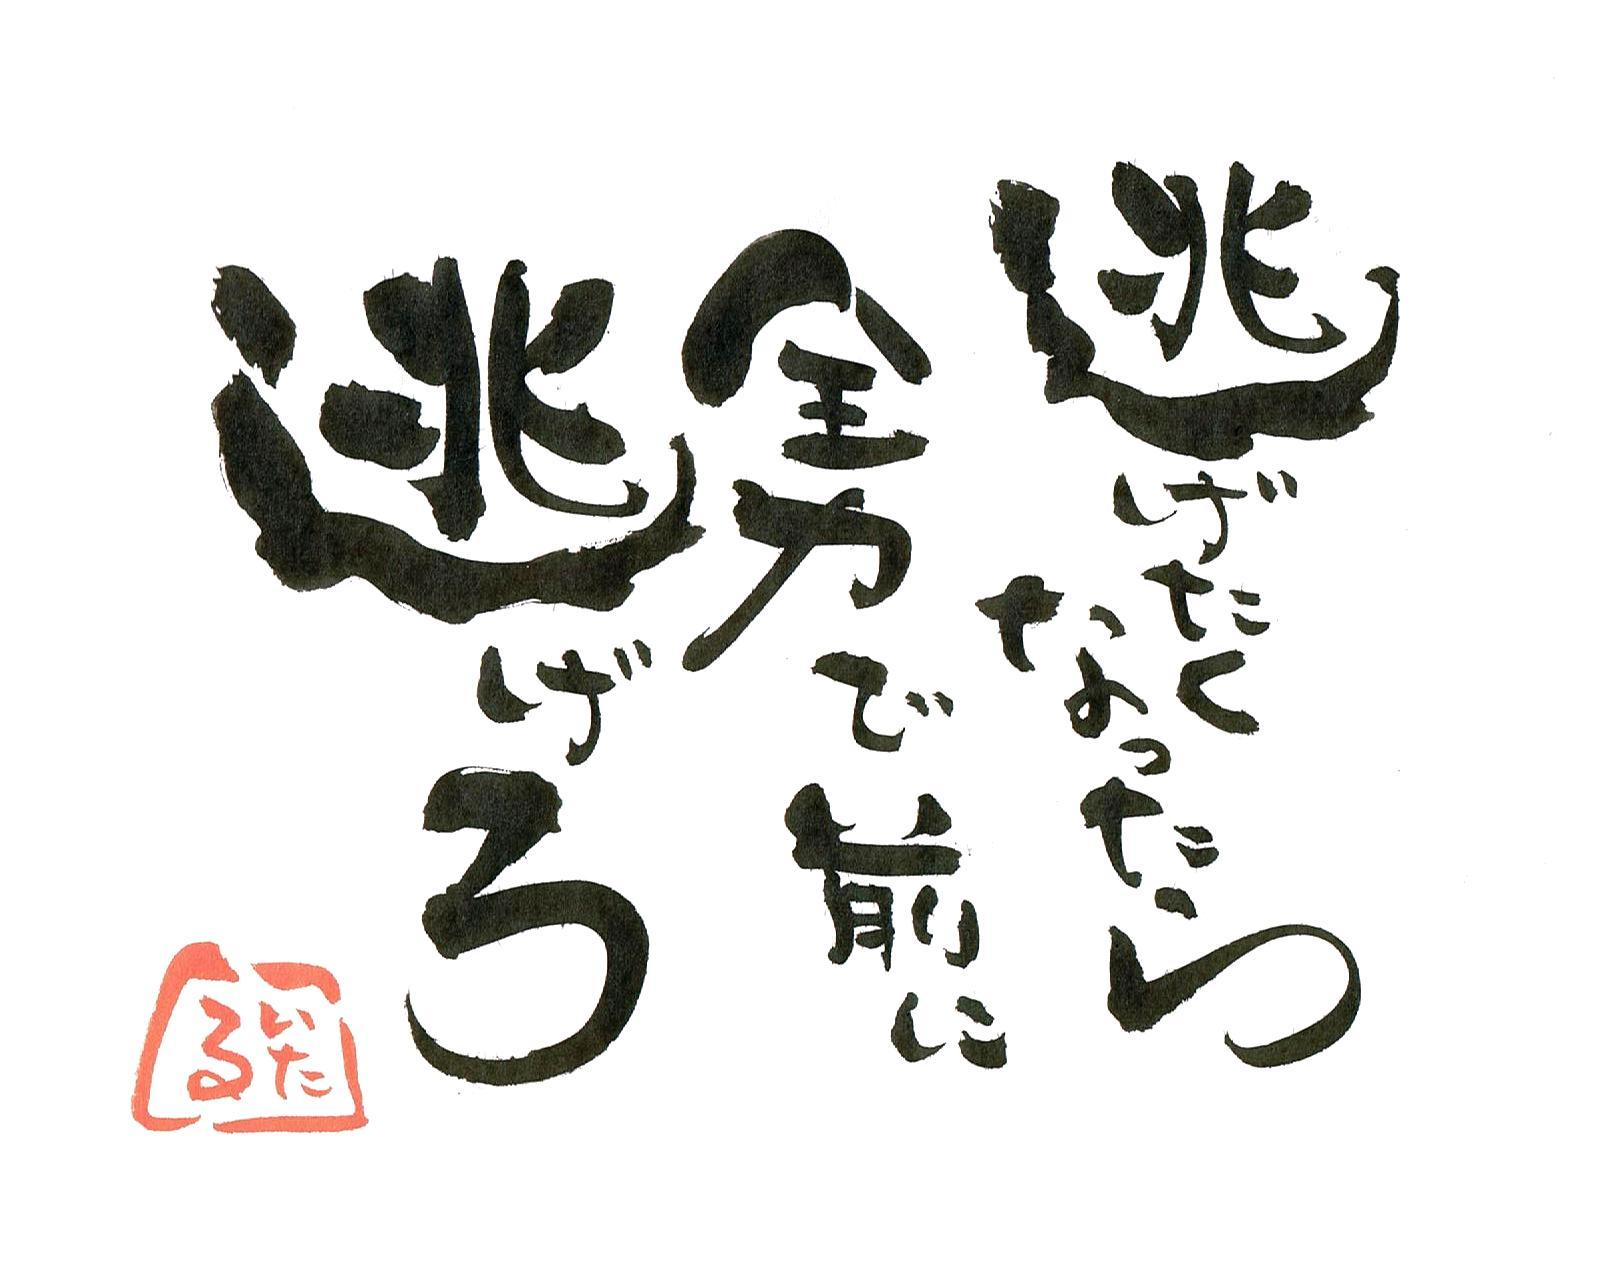 逃げたく
なったら
全力で前に
逃げろ
いた
る